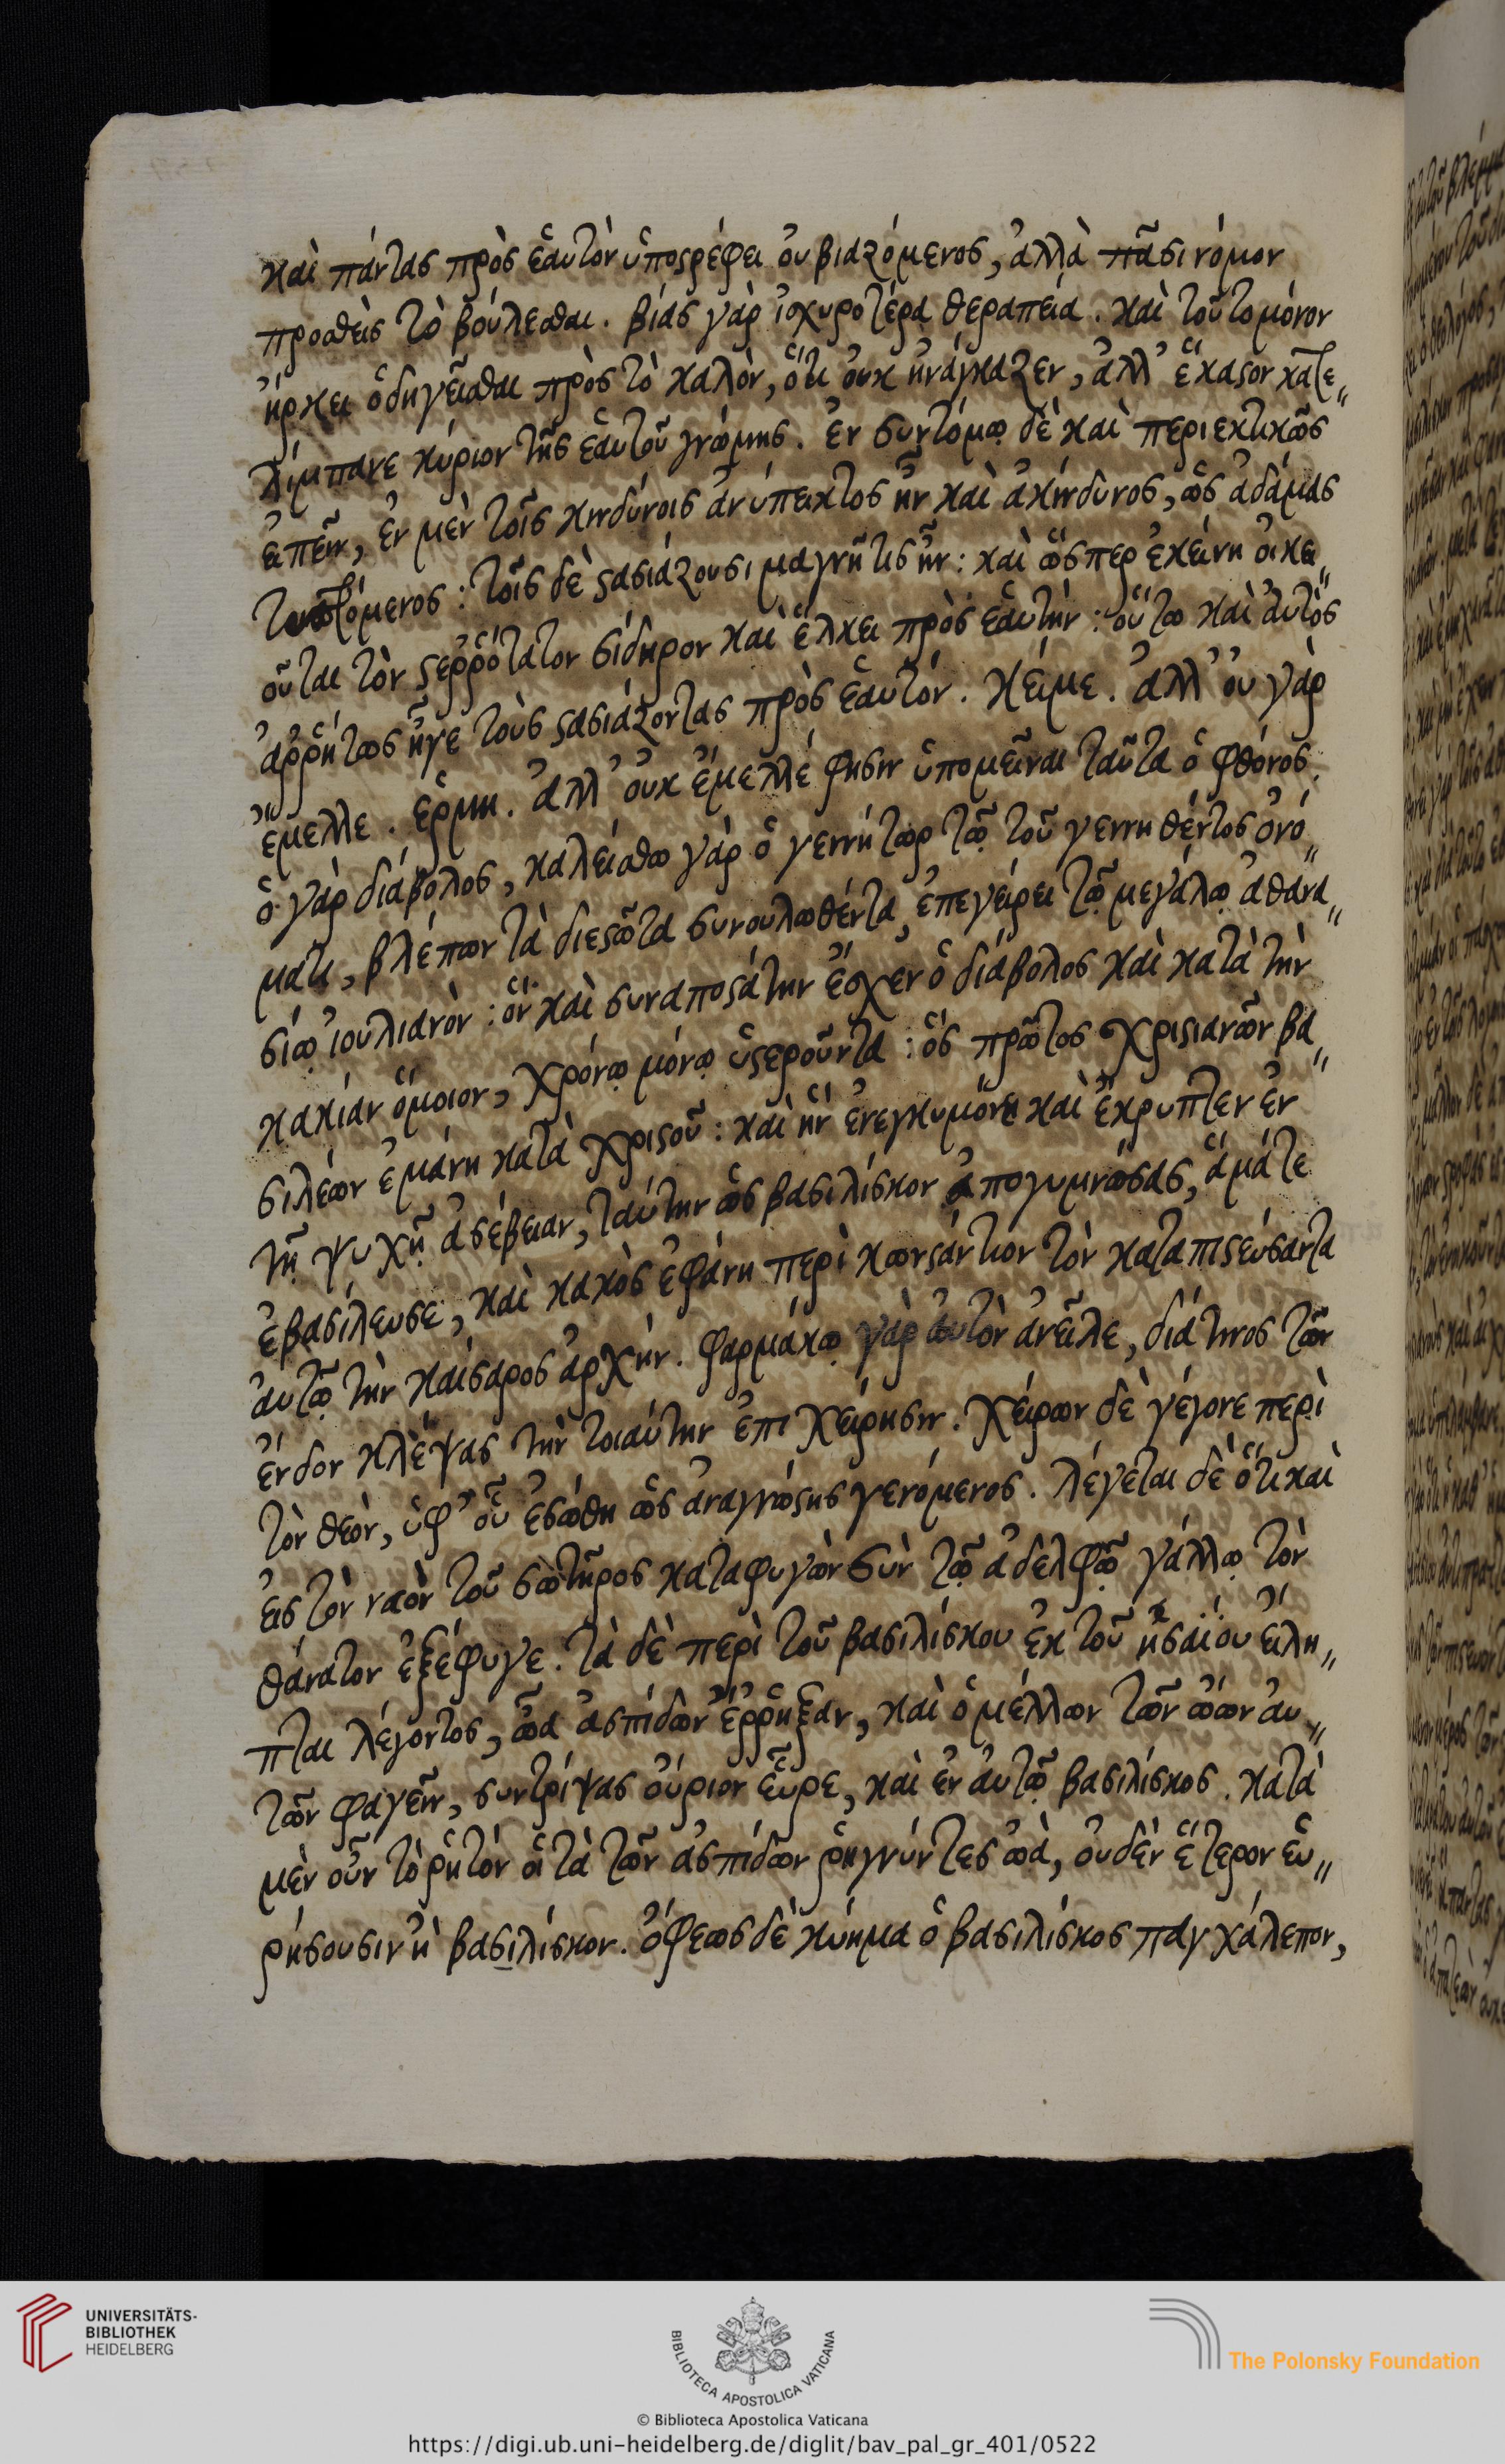 καὶ πάντας πρὸς ἑαυτὸν ὑποστρέφει οὐ βιαζόμενος, ἀλλὰ πᾶσι νόμον
προσθεὶς τὸ βούλεσθαι. βίας γὰρ ἰσχυροτέρα θεραπεία. καὶ τοῦτο μόνον
ἤρκει ὁδηγεῖσθαι πρὸς τὸ καλὸν, ὅτι οὐκ ἠνάγκαζεν, ἀλλ' ἕκαστον κατε"
λίμπανε κύριον τῆς ἑαυτοῦ γνώμης. ἐν συντόμω δὲ καὶ περιεκτικῶς
εἰπεῖν, ἐν μὲν τοῖς κινδύνοις ἀνύπεικτος ἦν καὶ ἀκίνδυνος, ὡς ἀδάμας
τυπτόμενος: τοῖς δὲ στασιάζουσι μαγνῆτις ἦν: καὶ ὥσπερ ἐκείνη οἰκει"
οῦται τὸν στερρότατον σίδηρον καὶ ἕλκει πρὸς ἑαυτὴν: οὕτω καὶ αὐτὸς
ἀρρήτως ἦγε τοὺς στασιάζοντας πρὸς ἑαυτόν. κείμε. ἀλλ' οὐ γὰρ
ἔμελλε. ἑρμη. ἀλλ' οὐκ ἔμελλέ φησιν ὑπομεῖναι ταῦτα ὁ φθόνος.
ὁ γὰρ διάβολος, καλείσθω γὰρ ὁ γεννήτωρ τῷ τοῦ γεννηθέντος ὀνό"
ματι, βλέπων τὰ διεστῶτα συνουλωθέντα, ἐπεγείρει τῷ μεγάλῳ ἀθανα"
σίῳ ἰουλιανὸν: ὃν καὶ συναποστάτην ἔσχεν ὁ διάβολος καὶ κατὰ τὴν
κακίαν ὅμοιον, χρόνῳ μόνῳ ὑστεροῦντα: ὃς πρῶτος χριστιανῶν βα"
σιλέων ἐμάνη κατὰ χριστοῦ: καὶ ἣν ἐνεγκυμόνει καὶ ἔκρυπτεν ἐν
τῇ ψυχῇ ἀσέβειαν, ταύτην ὡς βασιλίσκον ἀπογυμνώσας, ἅμά τε
ἐβασίλευσε, καὶ κακὸς ἐφάνη περὶ κωνστάντιον τὸν καταπιστεύσαντα
αὐτῷ τὴν καίσαρος ἀρχήν. φαρμάκῳ γὰρ αὐτὸν ἀνεῖλε, διά τινος τῶν
ἔνδον κλέψας τὴν τοιαύτην ἐπιχείρησιν. χείρων δὲ γέγονε περὶ
τὸν θεὸν, ὑφ' οὗ ἐσώθη ὡς ἀναγνώστης γενόμενος. λέγεται δὲ ὅτι καὶ
εἰς τὸν ναὸν τοῦ σωτῆρος καταφυγὼν σὺν τῷ ἀδελφῷ γάλλῳ τὸν
θάνατον ἐξέφυγε. τὰ δὲ περὶ τοῦ βασιλίσκου ἐκ τοῦ ἠσαΐου εἴλη"
πται λέγοντος, ὠὰ ἀσπίδων ἔρρηξαν, καὶ ὁ μέλλων τῶν ὠῶν αὐ"
τῶν φαγεῖν, συντρίψας οὔριον εὗρε, καὶ ἐν αὐτῷ βασιλίσκος. κατὰ
μὲν οὖν τὸ ῥητὸν οἱ τὰ τῶν ἀσπίδων ῥηγνύντες ὠὰ, οὐδὲν ἕτερον εὑ"
ρήσουσιν ἢ βασιλίσκον. ὄφεως δὲ κύημα ὁ βασιλίσκος παγχάλεπον,
UNIVERSITÄTS-
BIBLIOTHEK
HEIDELBERG
BIBLIOTECA APOSTOLICA VATICANA
The Polonsky Foundation
© Biblioteca Apostolica Vaticana
https://digi.ub.uni-heidelberg.de/diglit/bav_pal_gr_401/0522